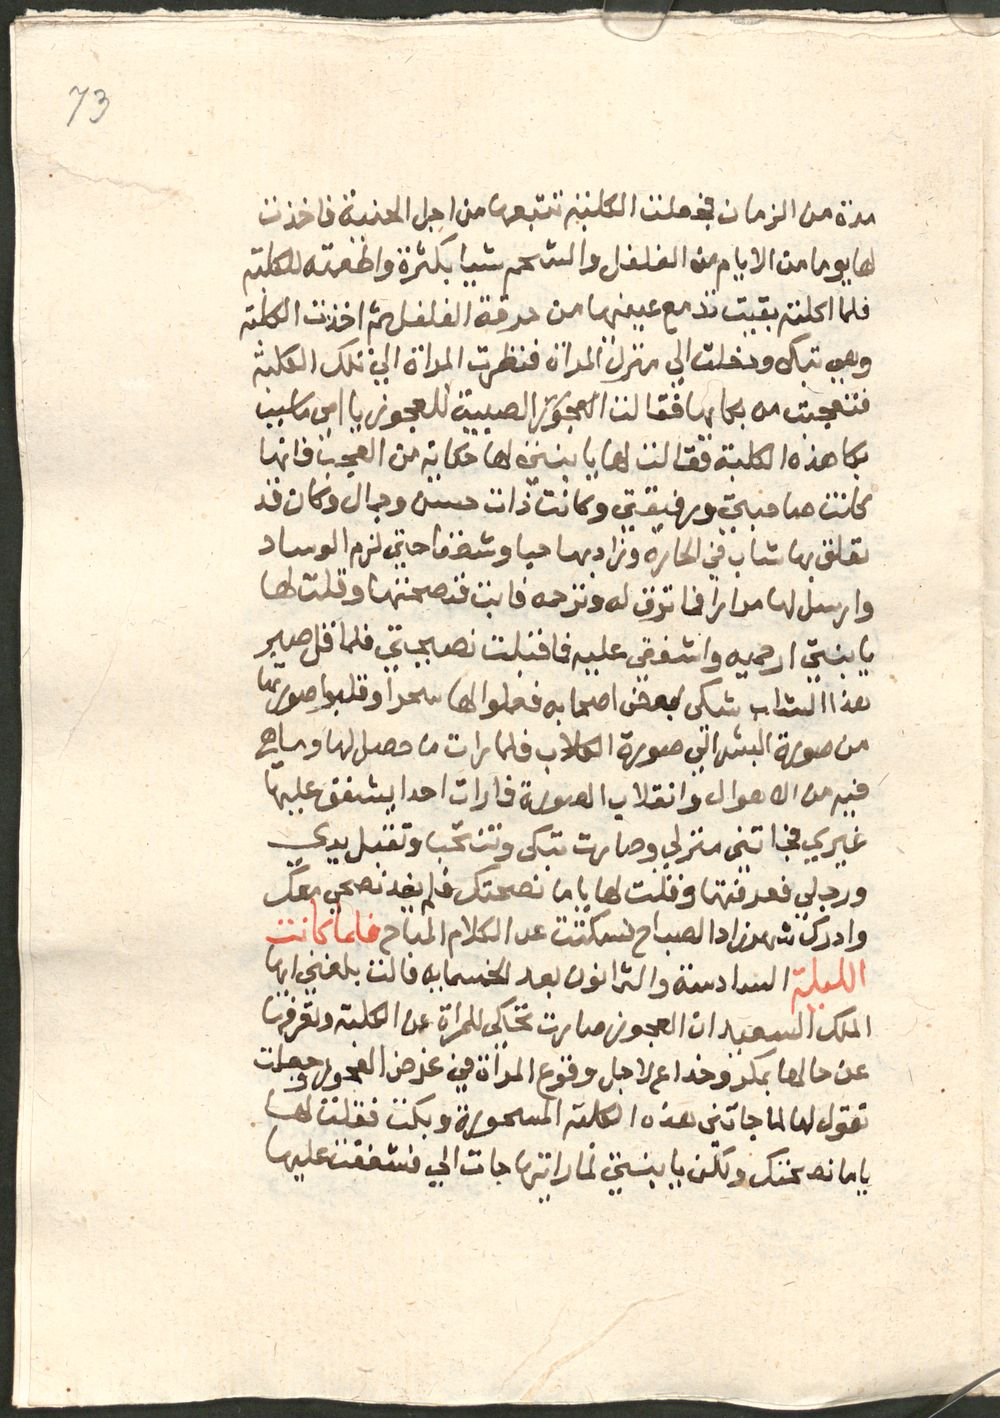 73
مدة من الزمان فجعلت الكلبة تتبعها من اجل الحنية فاخذت
لها يوما من الايام من الفلفل والشحم شيا بكثرة واطعمته للكلبة
فلما اكلته بقيت تدمع عينها من حرقة الفلفل ثم اخذت الكلبة
وهي تبكي ودخلت الي منزل المراة فنظرت المراة الي تلك الكلبة
فتعجبت من بكايها فقالت الصبية للعجوز يا امي ما سبب
بكا هذه الكلبة فقالت لها يا بنتي لها حكاية من العجب فانها
كانت صاحبتي ورفيقتي وكانت ذات حسن وجمال وكان قد
تعلق بها شاب في الحارة وزاد بها حبا وشغفا حتي لزم الوساد
وارسل لها مرارا فما ترق له وترحمه فابت فنصحتها وقلت لها
يا بنتي ارحميه واشفقي عليه فما قبلت نصيحتي فلما قل صبر
هذا الشاب شكي لبعض اصحابه فعملوا لها سحرا وقلبوا صورتها
من صورة البشر الي صورة الكلاب فلما رات ما حصل لها وما هي
فيه من الاهوال وانقلاب الصورة فما رات احدا يشفق عليها
غيري فجاتني منزلي وصارت تبكي وتنتحب وتقبل يدي
ورجلي فعرفتها وقلت لها ياما نصحتك فلم يفد نصحي معك
وادرك شهرزاد الصباح فسكتت عن الكلام المباح فلما كانت
الليلة السادسة والثمانون بعد الخمسمايه قالت بلغني ايها
الملك السعيد ان العجوز صارت تحكي للمراة عن الكلبة وتعرفها
عن حالها بمكر وخداع لاجل وقوع المراة في غرض العجوز وجعلت
تقول لها لما جاتني هذه الكلبة المسحورة وبكت فقلت لها
ياما نصحتك ولكن يا بنتي لما رايتها جات الي فشفقت عليها